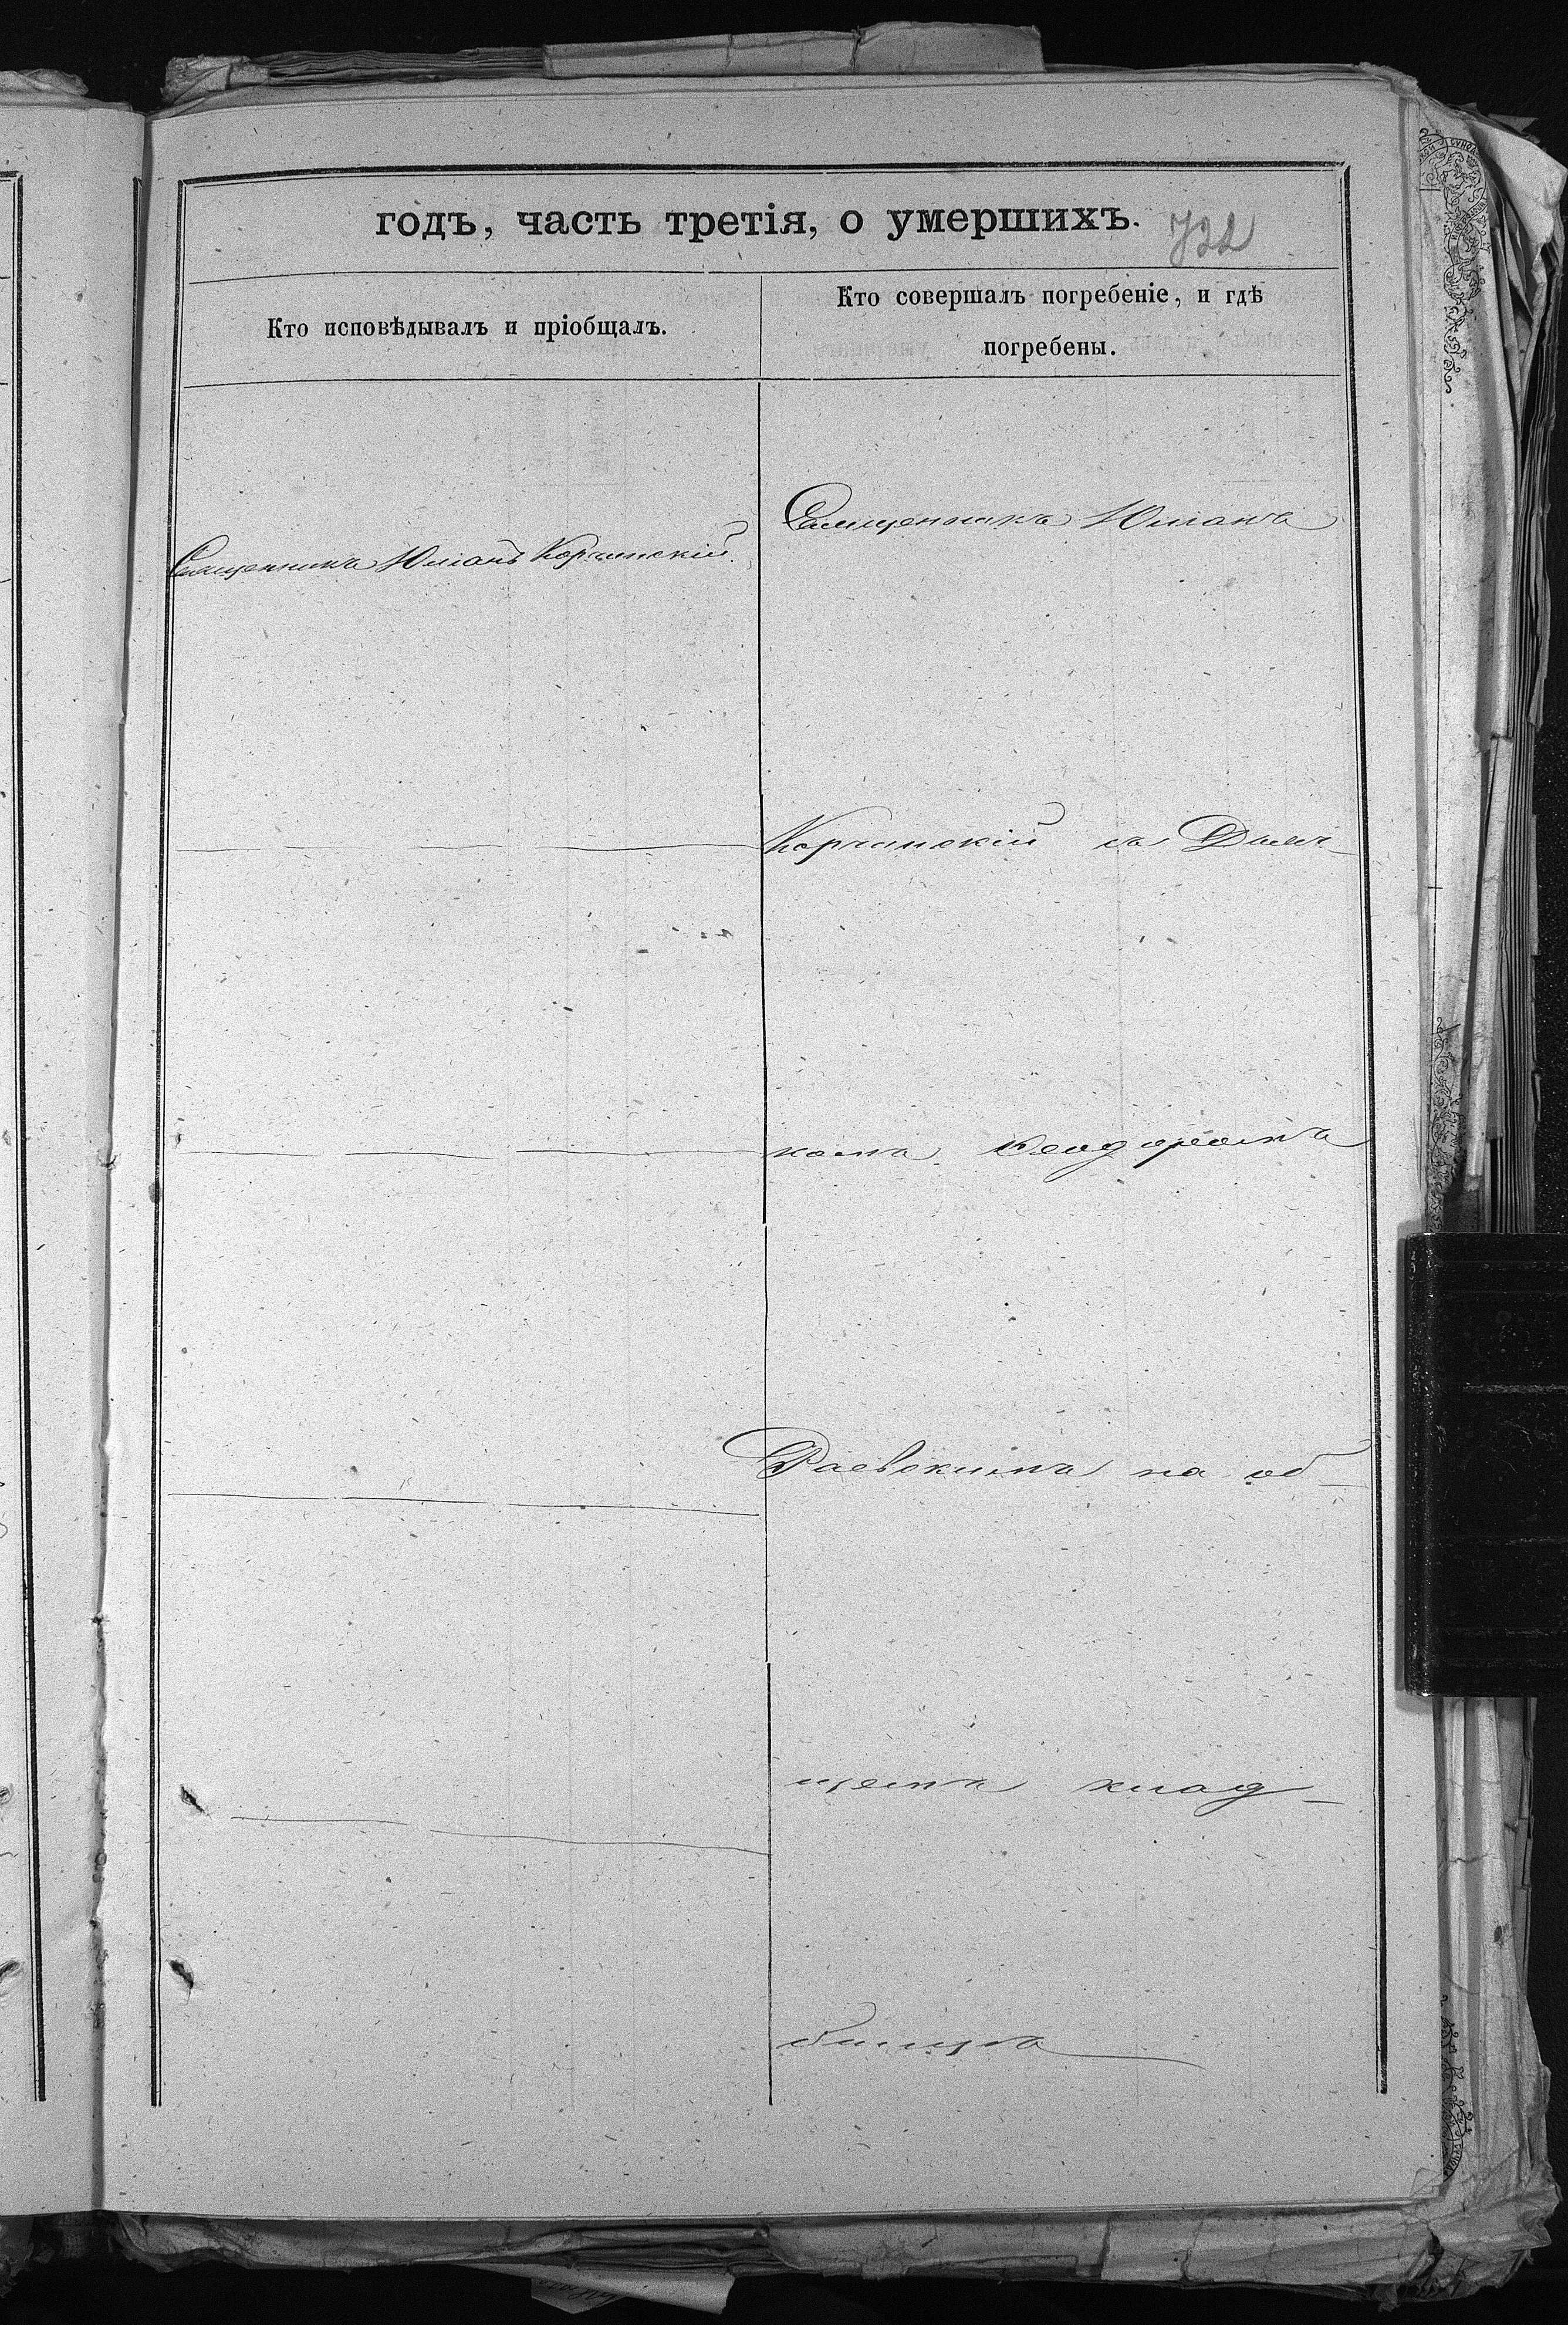 годъ, часть третія, о умершихъ. 722
Кто исповѣдывалъ и пріобщалъ.
Кто совершалъ погребеніе, и гдѣ
погребены.
Священникъ Юліанъ Корчинскій.
Священникъ Юліанъ
Корчинскій съ Дьяч-
комъ Ѳеодоромъ
Раевскимъ на об-
щемъ клад-
бищѣ